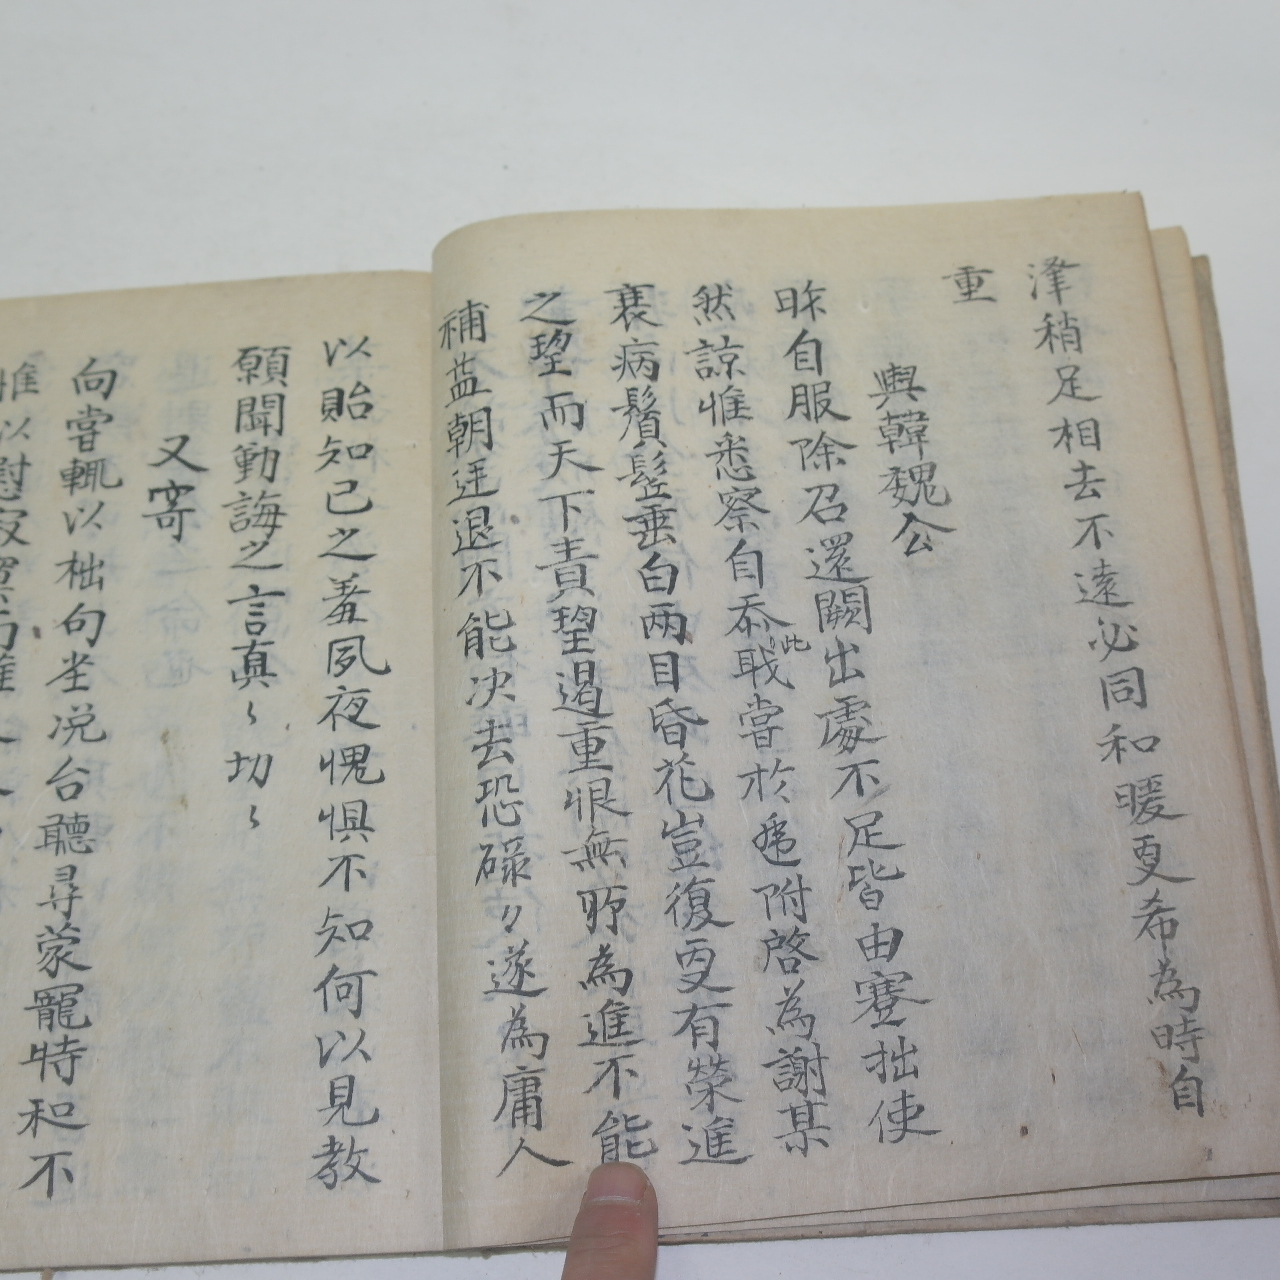 漨稍足相去不遠必同和暖更希為時自
重
與韓魏公
昨自服除召還闕出處不足皆由蹇拙使
然諒惟悉察自忝此職當於遞附啓為謝某
衰病鬢髮垂白兩目昏花豈復更有榮進
之望而天下責望過重恨無所為進不能
補益朝廷退不能决去恐碌々遂為庸人
以貽知己之羞夙夜愧惧不知何以見教
願聞勤誨之言真〻切〻
又寄
向嘗輒以拙句坐浼台聽尋蒙寵特和不
惟以慰寂寞而誰人